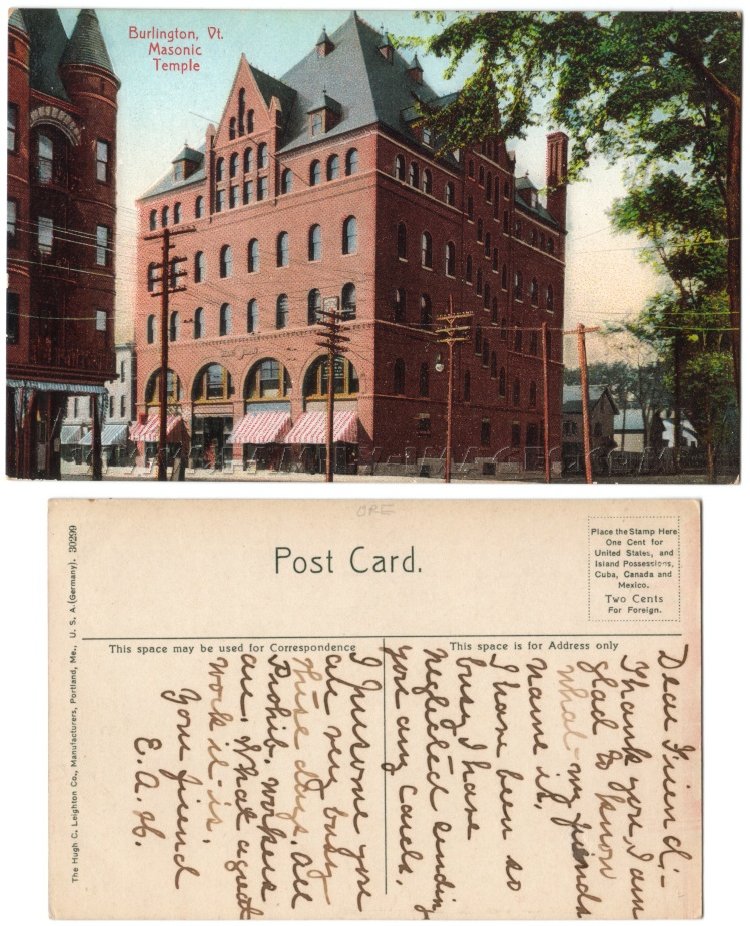 Burlington, Vt.
Masonic
Temple
ORE
Post Card.
Place the Stamp Here
One Cent for
United States, and
Island Possessions,
Cuba, Canada and
Mexico.
Two Cents
For Foreign.
This space may be used for Correspondence
This space is for Address only
The Hugh C. Leighton Co., Manufacturers, Portland, Me., U. S. A. (Germany). 30299
Dear Friend;-
Thank you, I am
glad to know
what my friends
name is,
I have been so
busy I have
neglected sending
you any cards.
I presume you
are very busy
these days. All
Prohib. workers
are. What a great
work it is.
Your friend
E. A. H.